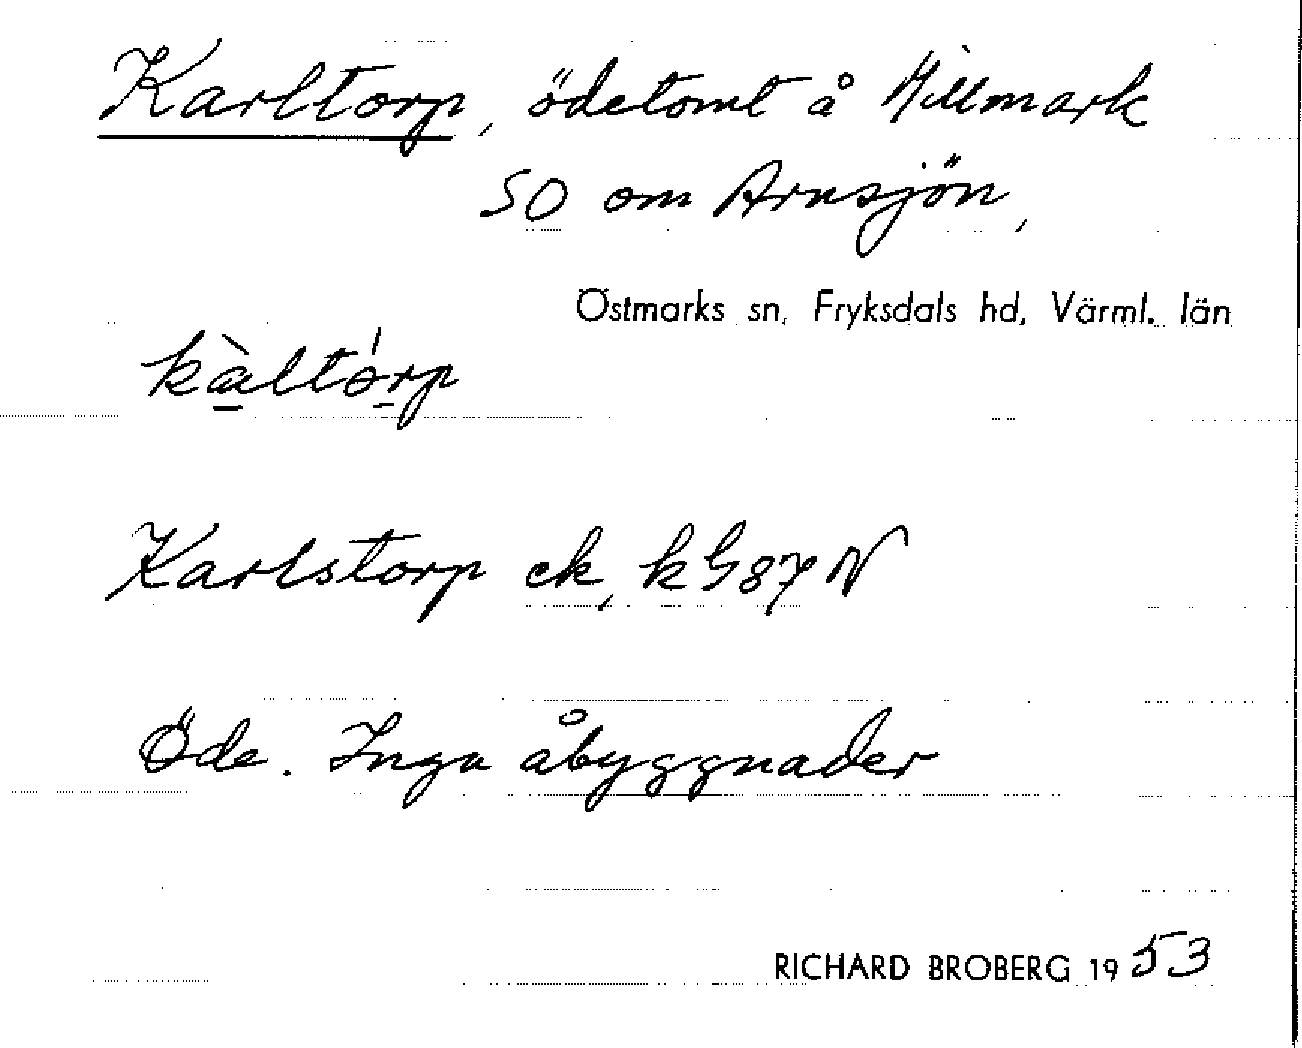 Karltorp, ödetomt å Millmark
SO om Arnsjön,
Östmarks sn, Fryksdals hd, Värml. län
kàltórp
Karlstorp ek, k G 87 N
Öde. Inga åbyggnader
RICHARD BROBERG 1953